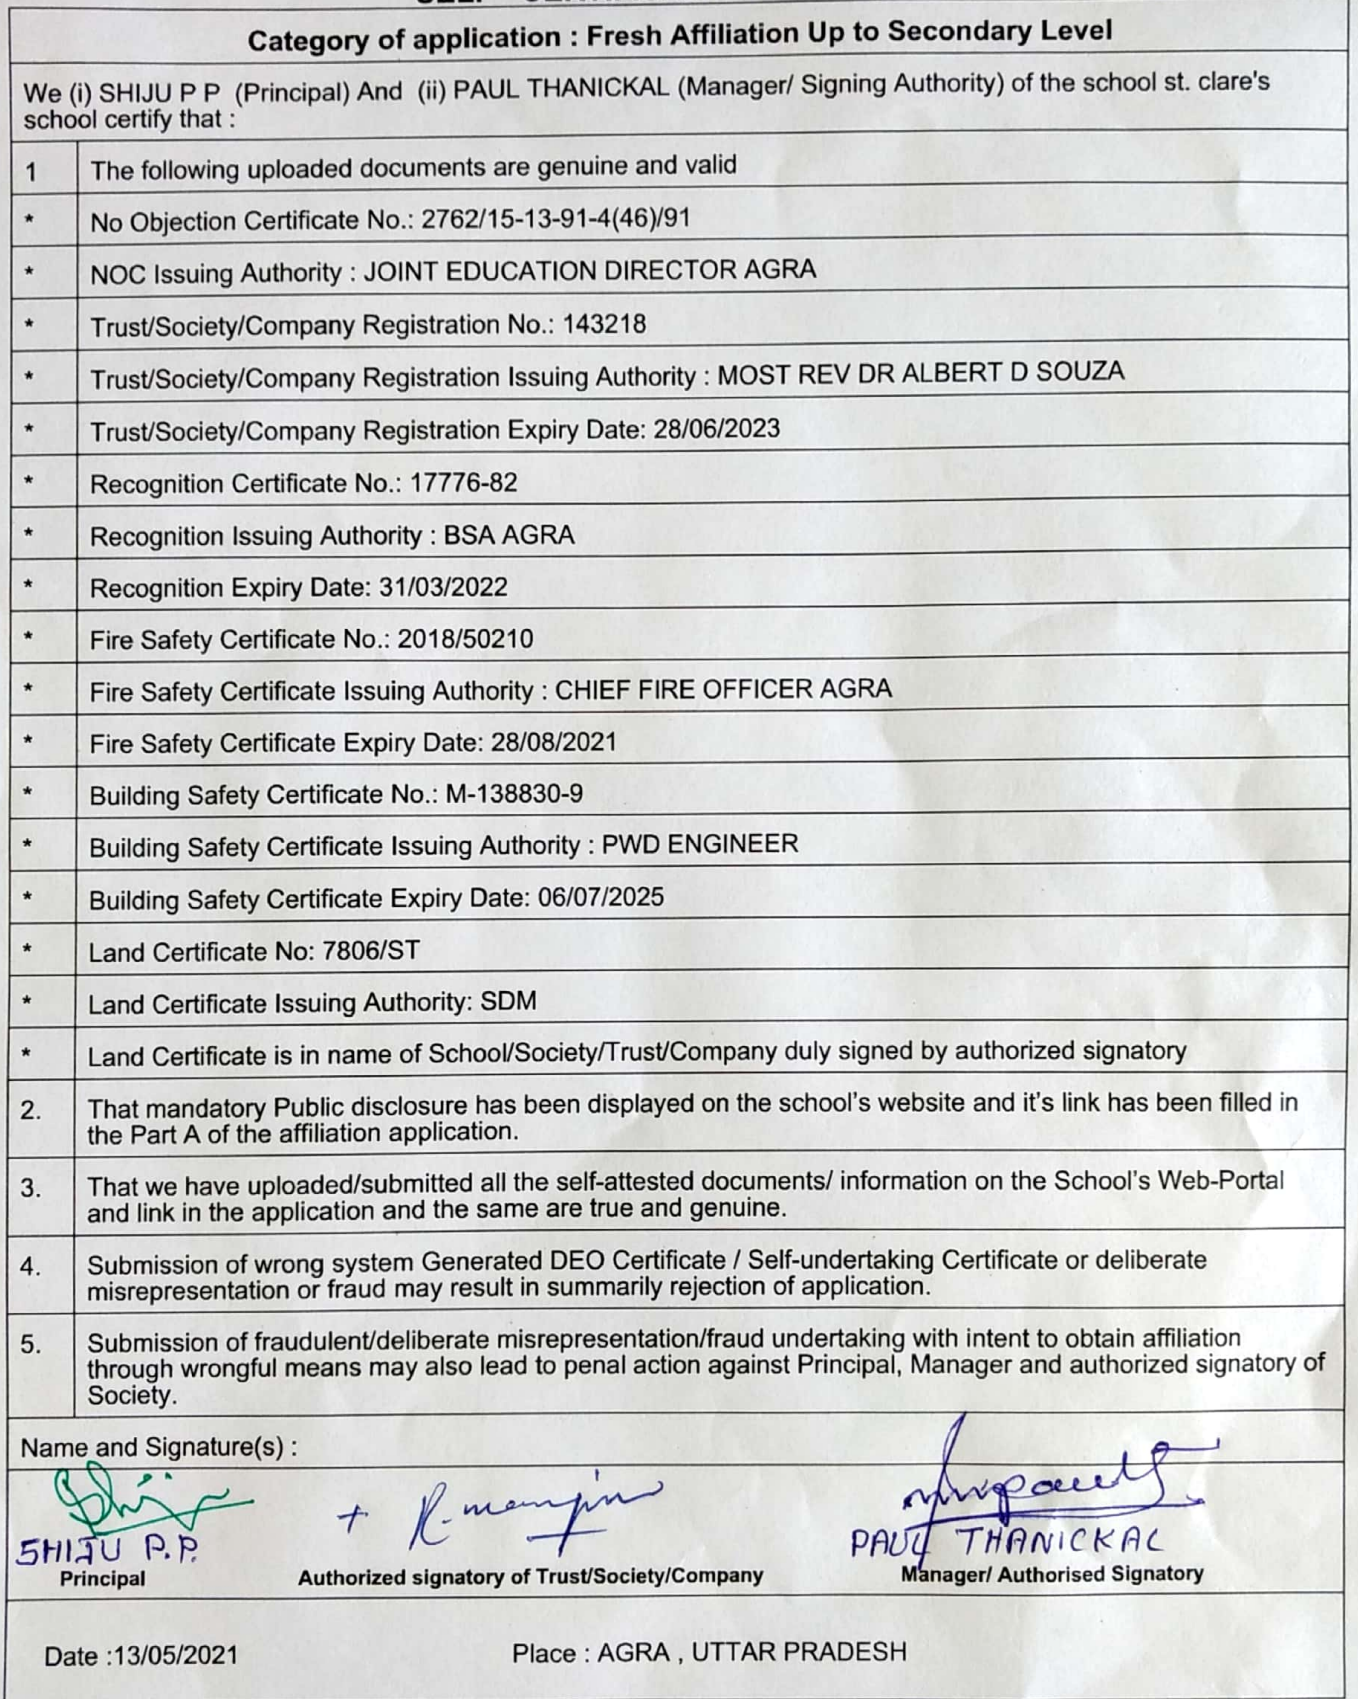 Category of application : Fresh Affiliation Up to Secondary Level
We (i) SHIJU P P (Principal) And (ii) PAUL THANICKAL (Manager/ Signing Authority) of the school st. clare's
school certify that :
1 The following uploaded documents are genuine and valid
* No Objection Certificate No.: 2762/15-13-91-4(46)/91
* NOC Issuing Authority : JOINT EDUCATION DIRECTOR AGRA
* Trust/Society/Company Registration No.: 143218
* Trust/Society/Company Registration Issuing Authority : MOST REV DR ALBERT D SOUZA
* Trust/Society/Company Registration Expiry Date: 28/06/2023
* Recognition Certificate No.: 17776-82
* Recognition Issuing Authority : BSA AGRA
* Recognition Expiry Date: 31/03/2022
* Fire Safety Certificate No.: 2018/50210
* Fire Safety Certificate Issuing Authority : CHIEF FIRE OFFICER AGRA
* Fire Safety Certificate Expiry Date: 28/08/2021
* Building Safety Certificate No.: M-138830-9
* Building Safety Certificate Issuing Authority : PWD ENGINEER
* Building Safety Certificate Expiry Date: 06/07/2025
* Land Certificate No: 7806/ST
* Land Certificate Issuing Authority: SDM
* Land Certificate is in name of School/Society/Trust/Company duly signed by authorized signatory
2. That mandatory Public disclosure has been displayed on the school's website and it's link has been filled in
the Part A of the affiliation application.
3. That we have uploaded/submitted all the self-attested documents/ information on the School's Web-Portal
and link in the application and the same are true and genuine.
4. Submission of wrong system Generated DEO Certificate / Self-undertaking Certificate or deliberate
misrepresentation or fraud may result in summarily rejection of application.
5. Submission of fraudulent/deliberate misrepresentation/fraud undertaking with intent to obtain affiliation
through wrongful means may also lead to penal action against Principal, Manager and authorized signatory of
Society.
Name and Signature(s) :
Shiju
SHIJU P.P. PAUL THANICKAL
Principal Authorized signatory of Trust/Society/Company Manager/ Authorised Signatory
Date :13/05/2021 Place : AGRA , UTTAR PRADESH